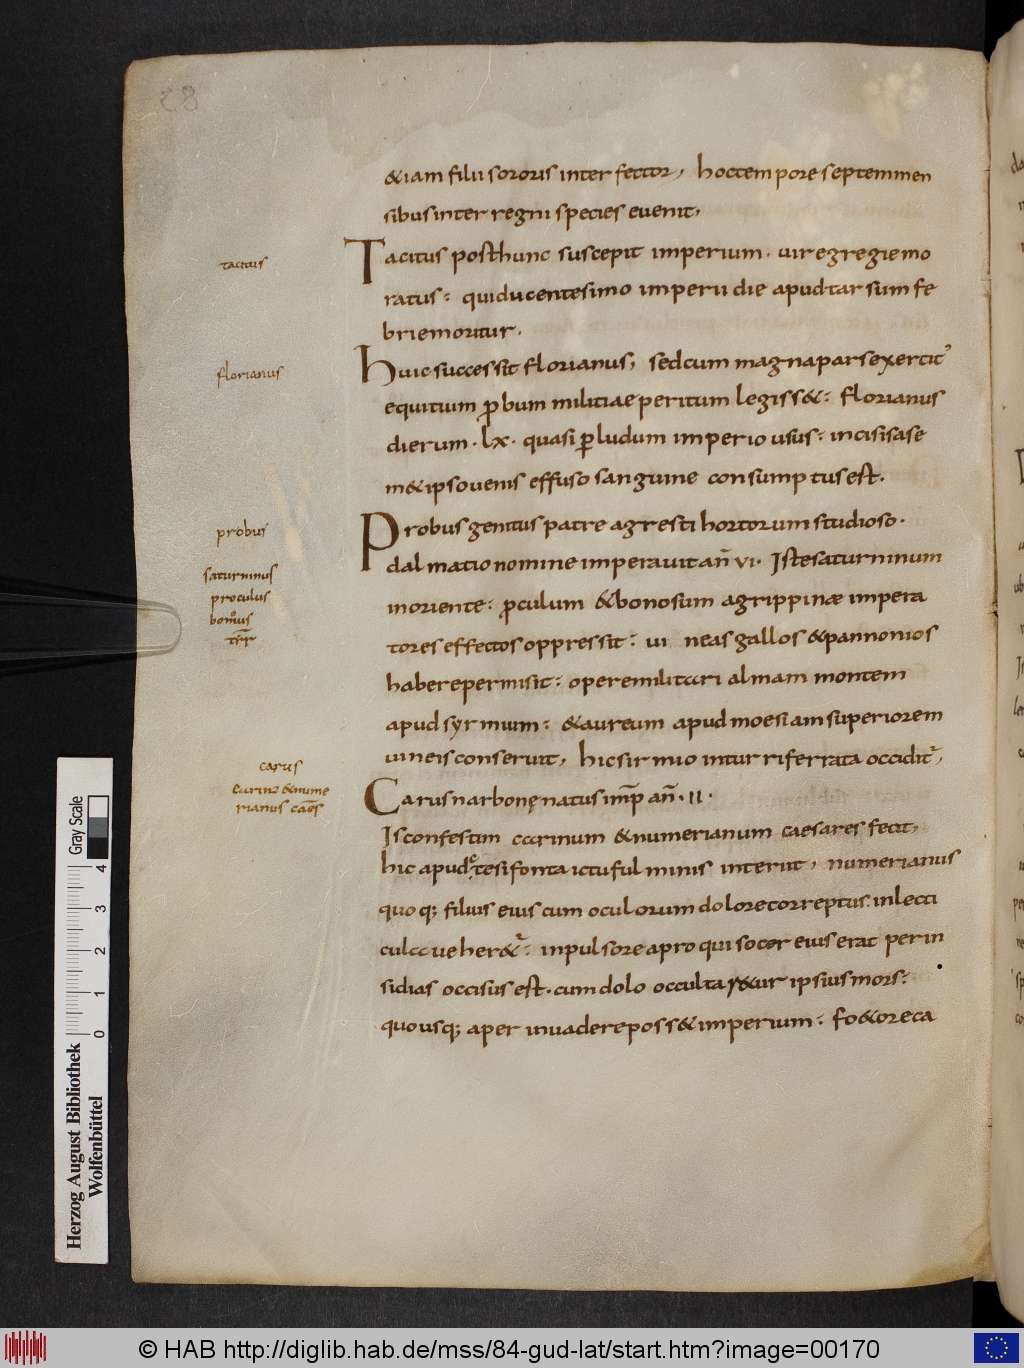 38
&iam filii sororis inter fector, hoctempore septemmen
sibus inter regni species euenit,
tacitus
Tacitus posthunc suscepit imperium. uir egregie mo
ratus: qui ducentesimo imperii die apud tarsum fe
brie moritur.
florianus
Huic successit florianus, sed cum magna pars exercit᾽
equitium ꝓbum militiae peritum legiss&: florianus
dierum. lx. quasi ꝑ ludum imperio usus: incisis a se
m&ipso uenis effuso sanguine consumptus est.
probus
Probus genitus patre agresti hortorum studioso.
dalmatio nomine imperauit añ vi. Iste saturninum
saturninus
proculus
in oriente: ꝓculum &bonosum agrippinæ impera
tores effectos oppressit: ui neas gallos &pannonios
habere permisit: opere militari almam montem
apud syrmium: &aureum apud moesiam superiorem
uineis conseruit, hic sirmio in turri ferrata occidit᷑,
carus
carin᷑ &nume
rianus cae͞s
Carus narbonę natus im͞p añ. II.
Is confestim carinum &numerianum caesares fecit,
hic apud ctesifonta ictu fulminis interiit, numerianus
quoq; filius eius cum oculorum dolore correptus. in lecti
culacue her&᷑: inpulsore apro qui socer eius erat per in
sidias occisus est. cum dolo occulta r&ur ipsius mors:
quo usq; aper inuadere poss& imperium: fo&ore ca
Herzog August Bibliothek
Wolfenbüttel
0 1 2 3 4
Gray Scale
© HAB http://diglib.hab.de/mss/84-gud-lat/start.htm?image=00170